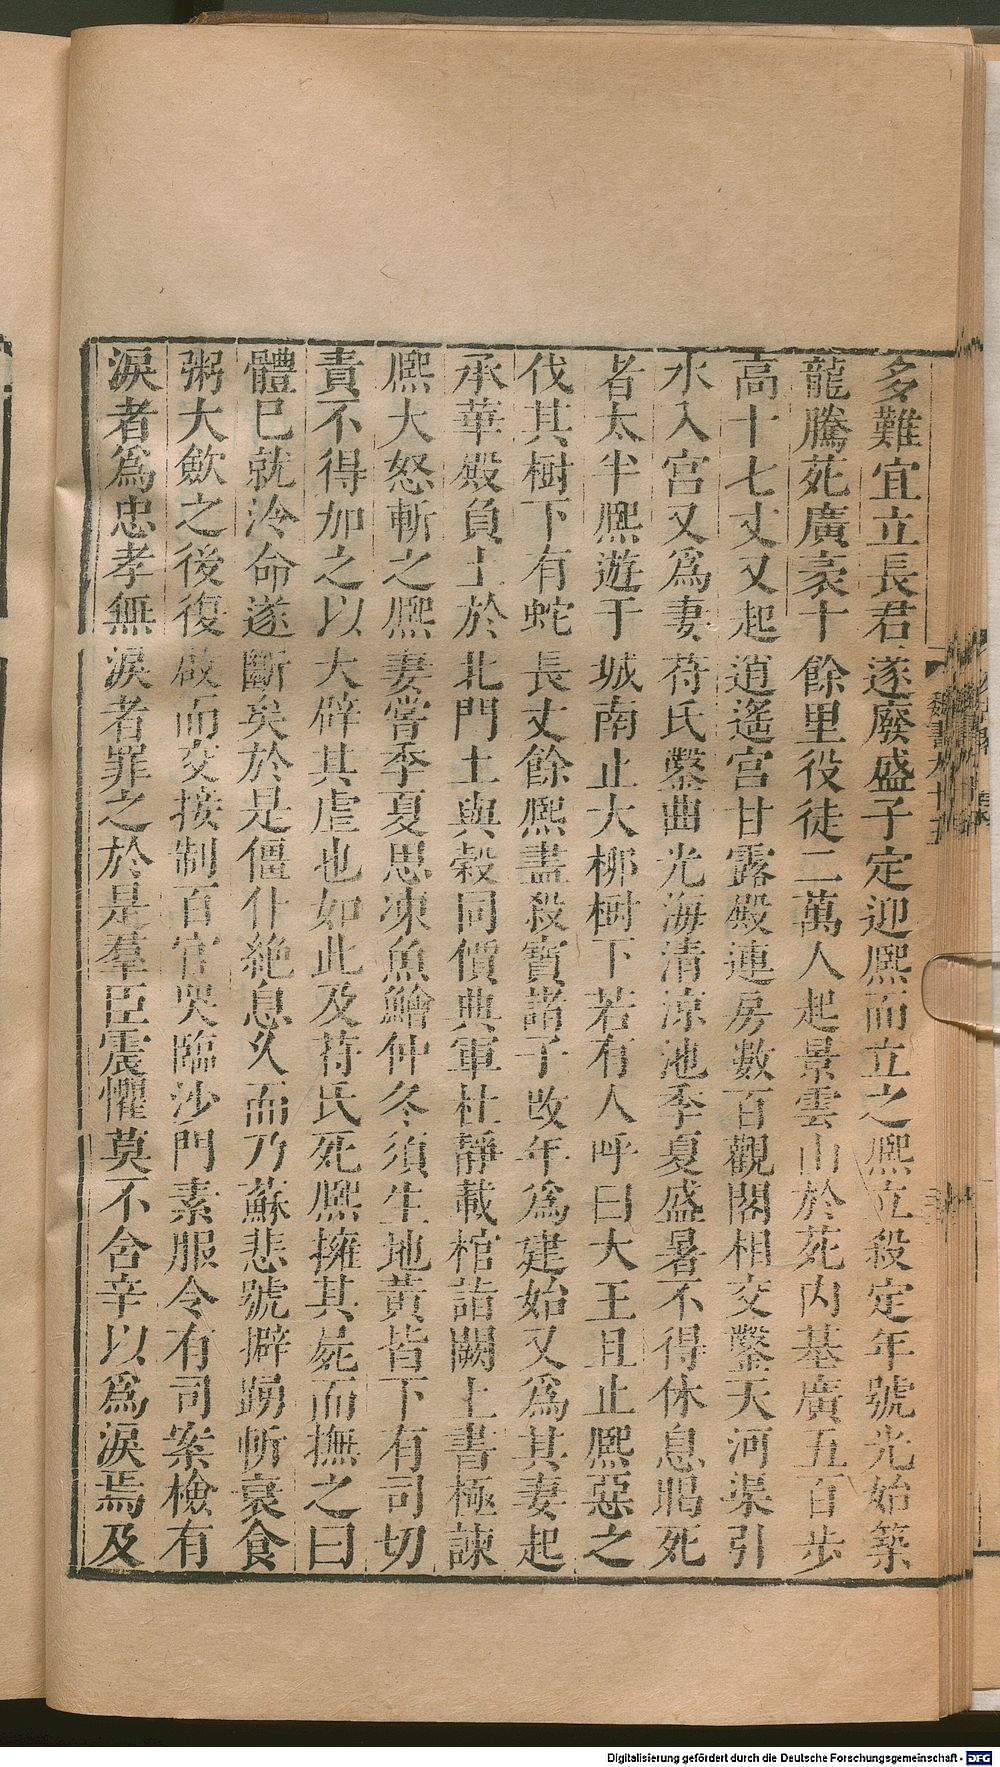 多難宜立長君遂廢盛子定迎熈而立之熈立殺定年號光始築
龍騰苑廣袤十餘里役徒二萬人起景雲山於苑内基廣五百步
高十七丈又起逍遙宮甘露殿連房數百觀閣相交鑿天河渠引
水入宮又爲妻苻氏鑿曲光海清凉池季夏盛暑不得休息暍死
者太半熈遊于城南止大柳樹下若有人呼曰大王且止熈惡之
伐其樹下有蛇長丈餘熈盡殺寶諸子改年爲建始又爲其妻起
承華殿負土於北門土與穀同價典軍杜靜載棺詣闕上書極諫
熈大怒斬之熈妻嘗季夏思凍魚鱠仲冬須生地黄皆下有司切
責不得加之以大辟其虐也如此及苻氏死熈擁其屍而撫之曰
體已就冷命遂斷矣於是僵仆絶息久而乃蘇悲號擗踴斬衰食
粥大斂之後復啟而交接制百官哭臨沙門素服令有司案檢有
淚者爲忠孝無淚者罪之於是羣臣震懼莫不含辛以爲淚焉及
魏書九十五
Digitalisierung gefördert durch die Deutsche Forschungsgemeinschaft - DFG